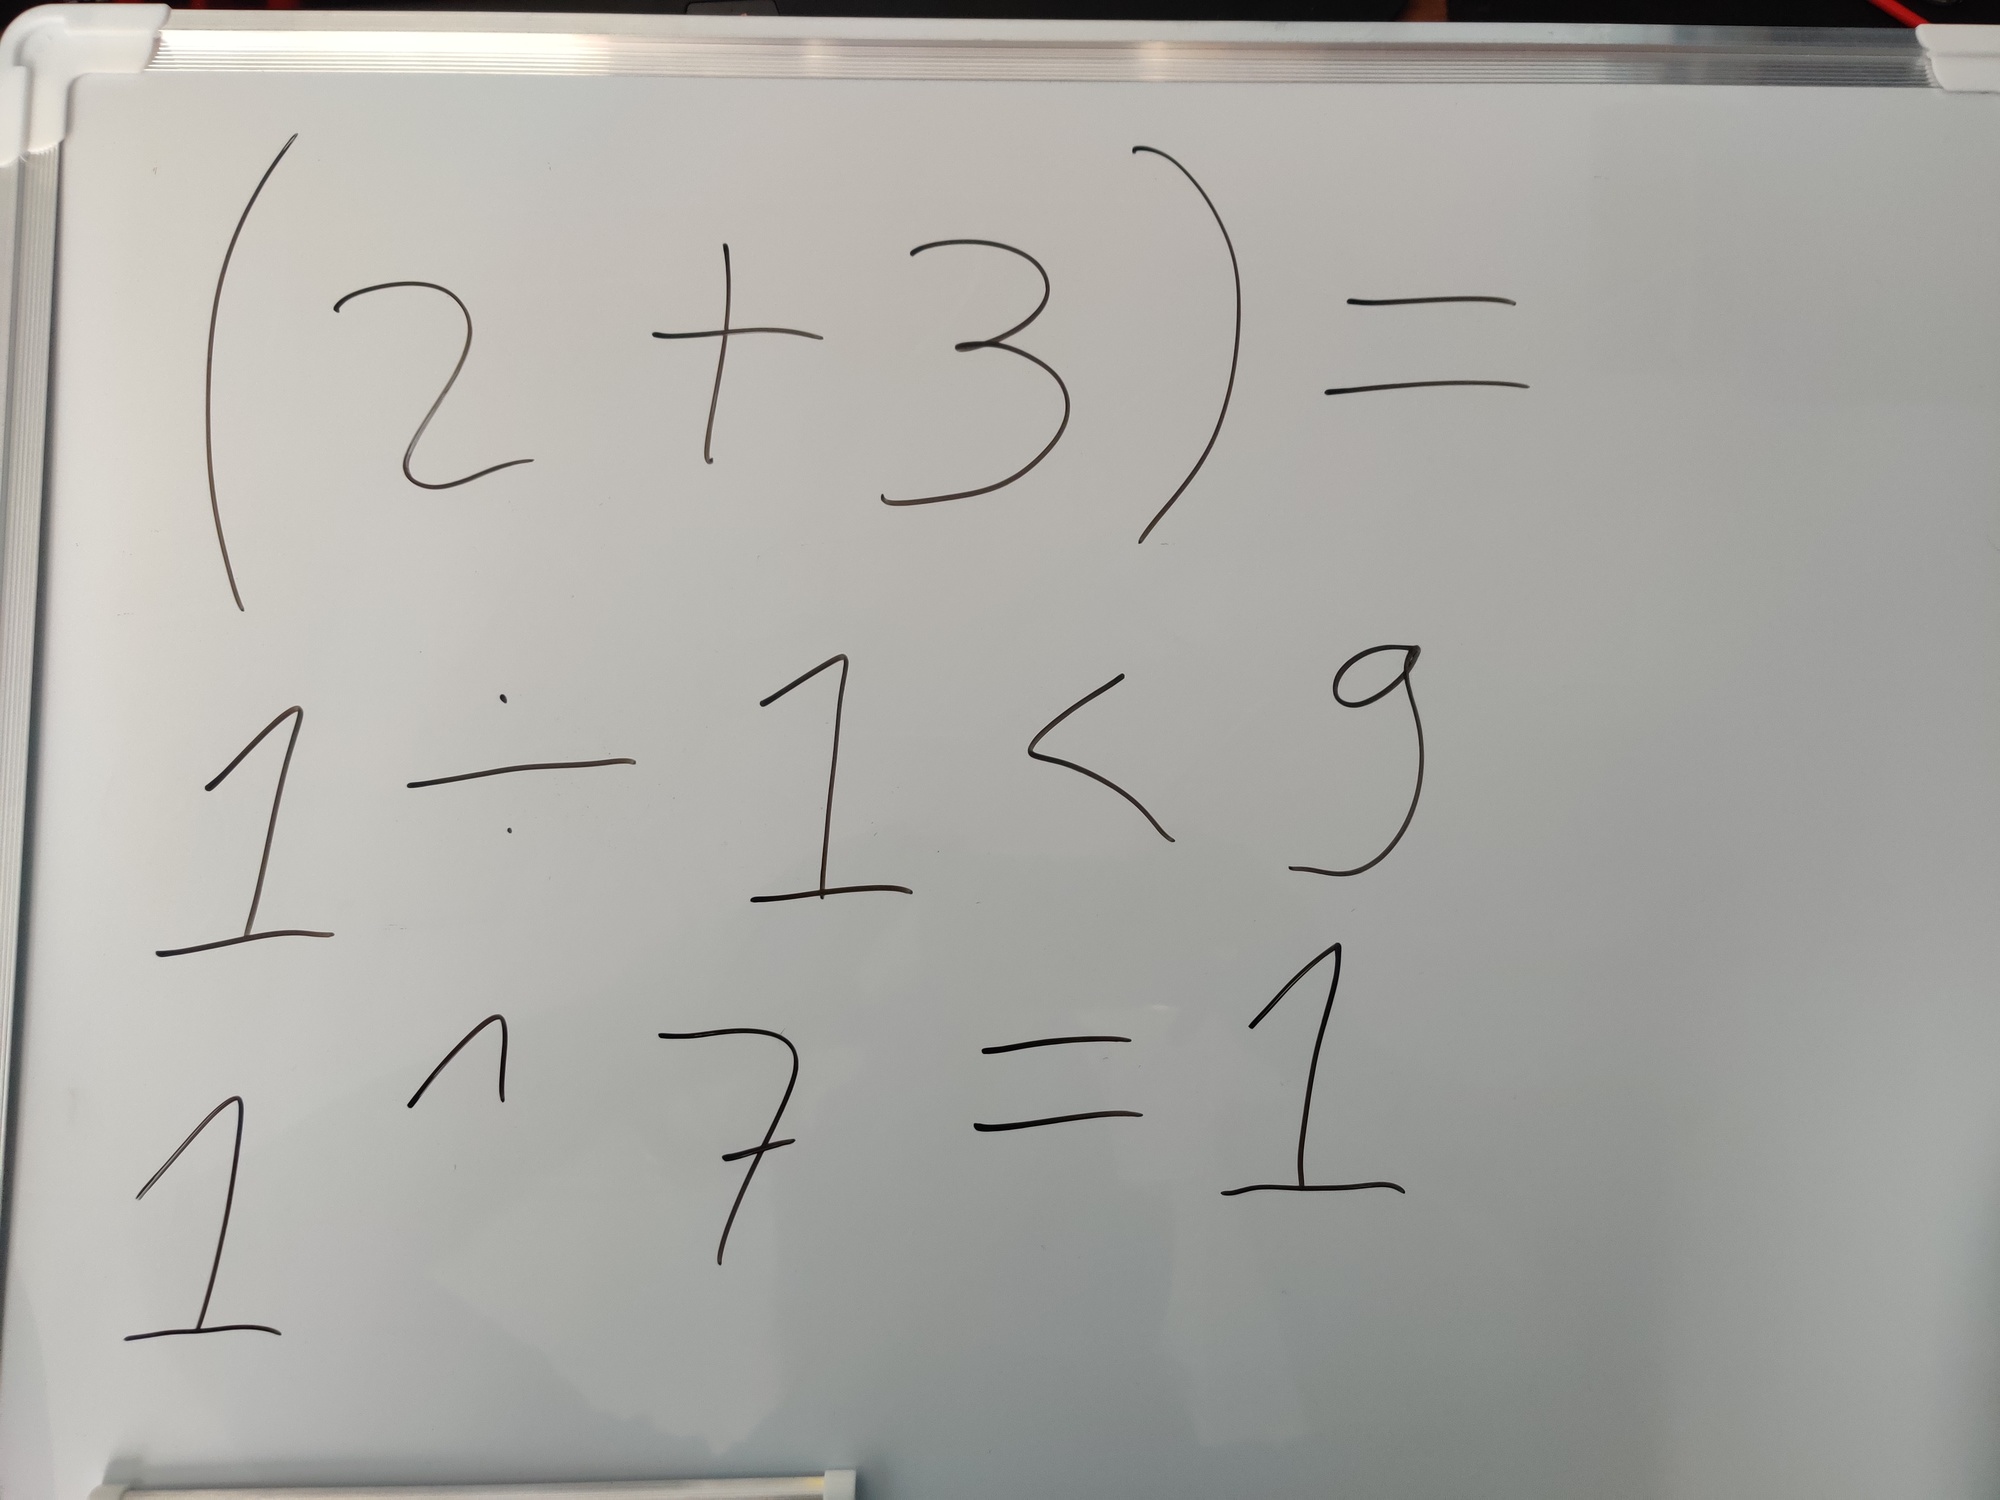 (2 + 3) =
1 ÷ 1 < 9
1 ^ 7 = 1